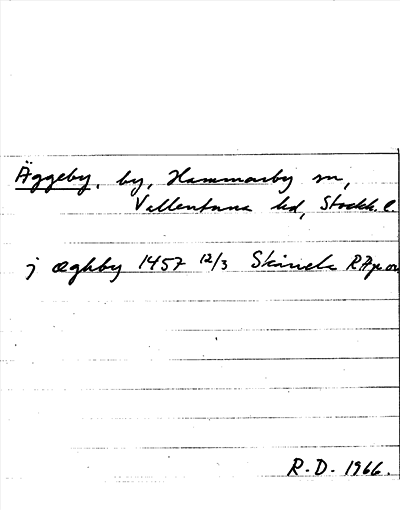 Äggeby, by, Hammarby sn,
Vallentuna hd, Stockh. l.
j æghby 1457 12/3 Skånela RAp or
R.D. 1966.